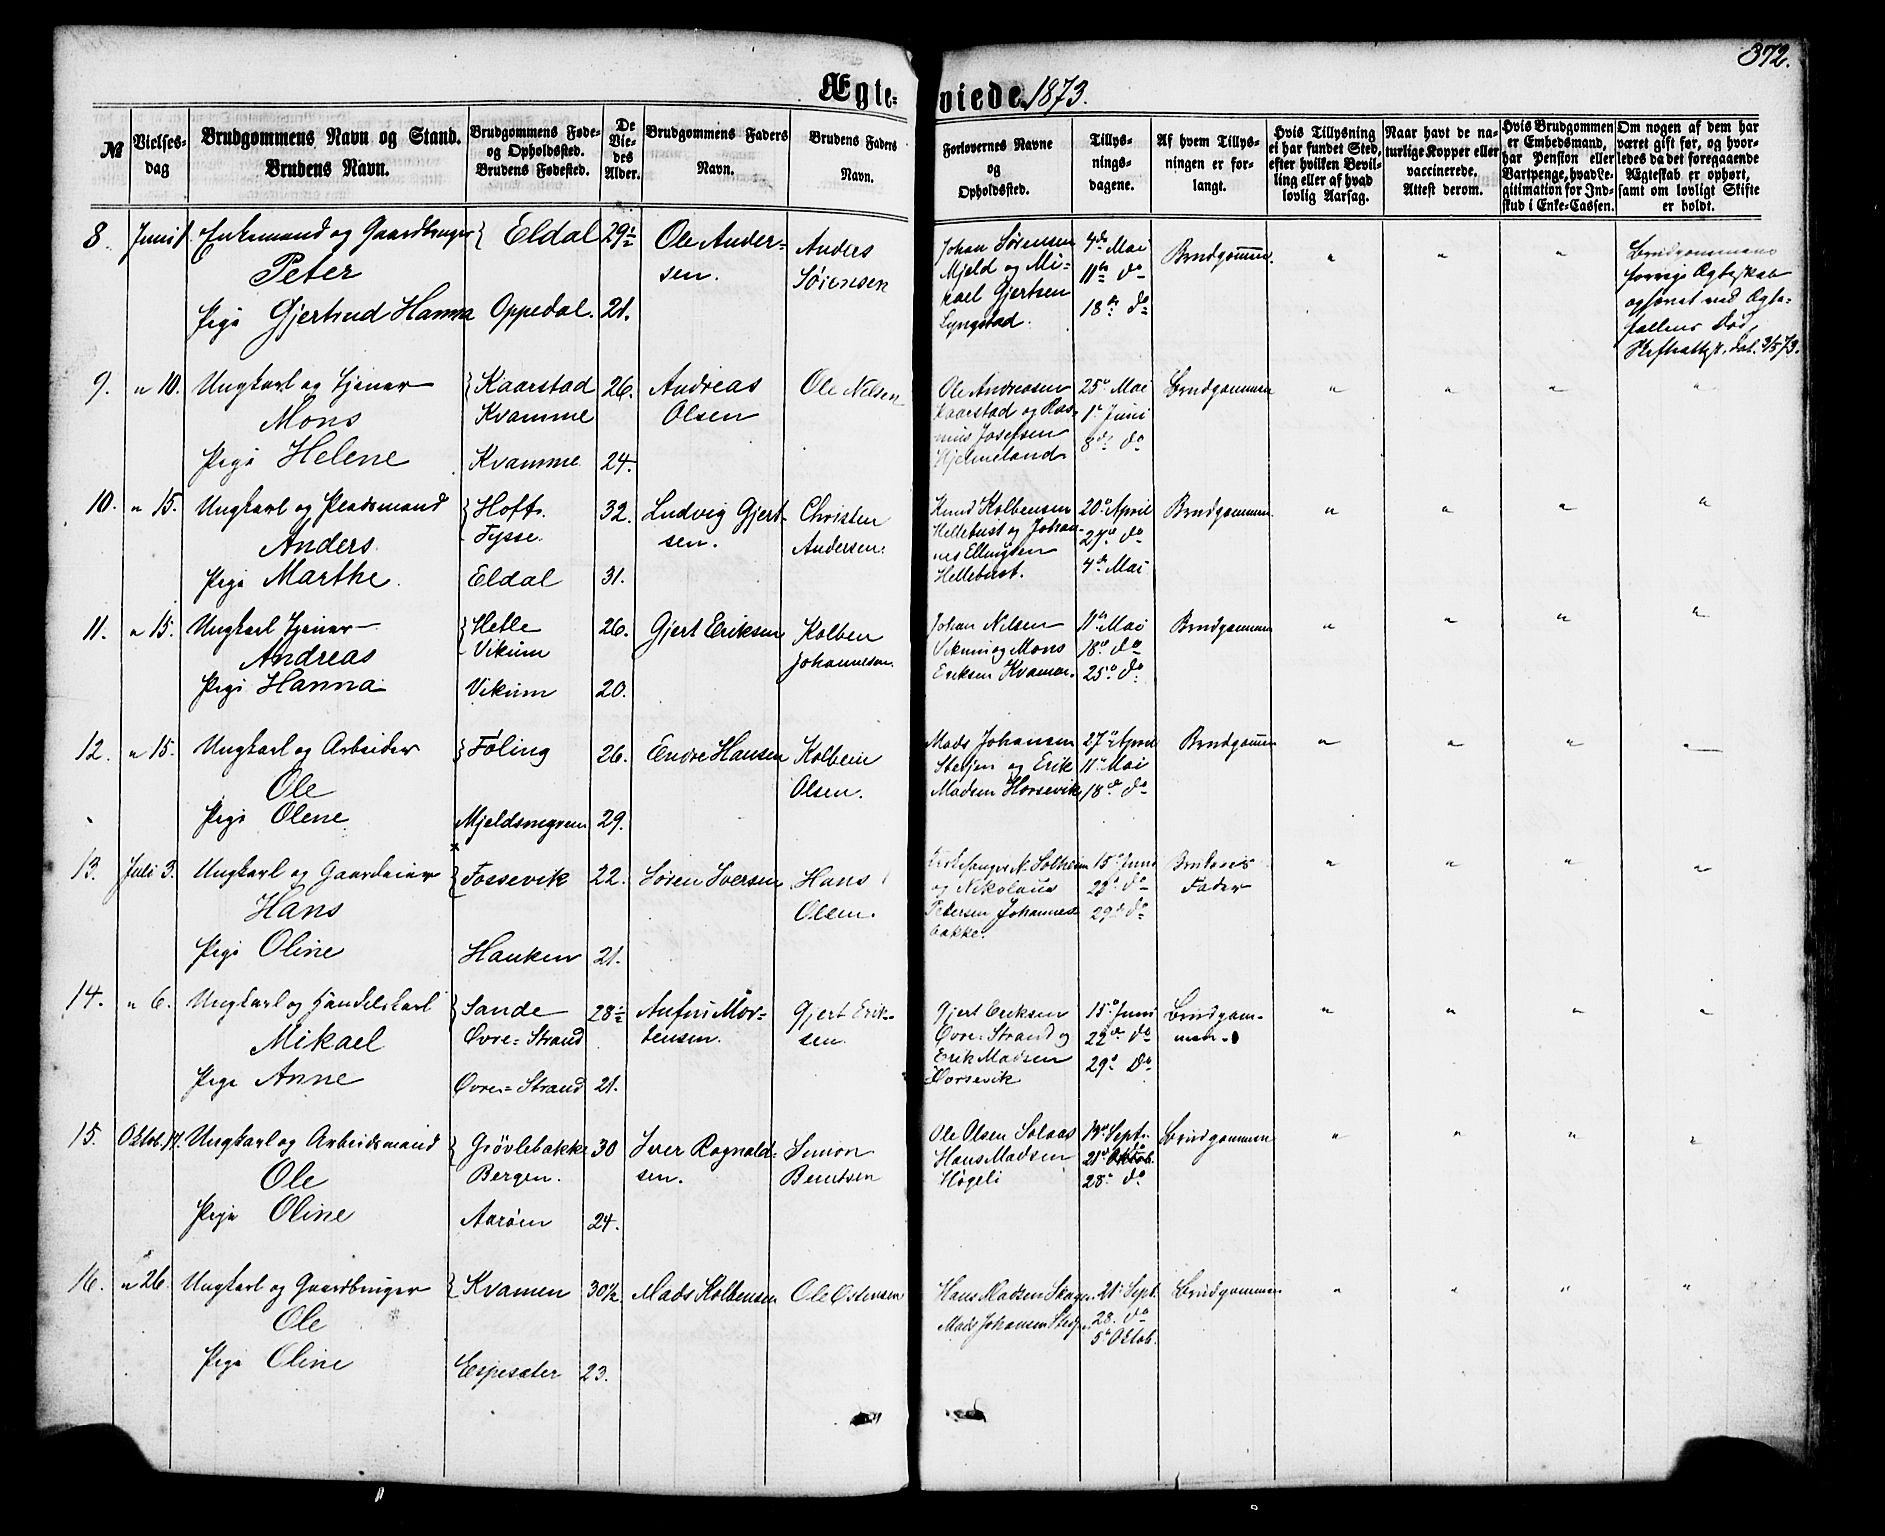 372.
Ægte= viede 1873.
№
Vielses-
dag
Brudgommens Navn og Stand.
Brudens Navn.
Brudgommens Føde-
og Opholdssted.
Brudens Fødested.
De
Vie-
des
Alder.
Brudgommens Faders
Navn.
Brudens Faders
Navn.
Forlovernes Navne
og
Opholdssted.
Tillys-
nings-
dagene.
Af hvem Tillys-
ningen er for-
langt.
Hvis Tillysning
ei har fundet Sted,
efter hvilken Bevil-
ling eller af hvad
lovlig Aarsag.
Naar havt de na-
turlige Kopper eller
vaccinerede,
Attest derom.
Hvis Brudgommen
er Embedsmand,
har Pension eller
Vartpenge, hvad Le-
gitimation for Ind-
skud i Enke-Cassen.
Om nogen af dem har
været gift før, og hvor-
ledes da det foregaaende
Ægteskab er ophørt,
samt om lovligt Skifte
er holdt.
8. Juni 1. Enkemand og Gaardbruger { Eldal 29½ Ole Ander- Anders
Peter sen. Sørensen
Pige Gjertrud Hanna Oppedal. 21.
Johan Sørensen 4de Mai Brudgommen. " " " Brudgommens
Mjeld og Mi- 11te do forrige Ægteskab
kael Gjertsen 18de do
Lyngstad.
ophævet ved Ægte-
fællens Død,
9. " 10. Ungkarl og Tjener { Kaarstad 26. Andreas Ole Nilsen
Mons Kvamme Olsen
Pige Helene Kvamme 24.
Ole Andreasen 25e Mai Brudgommen " " " "
Kaarstad og Ras- 1e Juni
mus Josefsen 8de do
Hjelmeland
10. " 15. Ungkarl og Pladsmand { Hoft. 32. Ludvig Gjert- Christen
Anders Tysse. sen. Andersen.
Pige Marthe. Eldal 31.
Knud Kolbensen 20e April Brudgommen " " " "
Hellebust og Johan- 27e do
nes Ellingsen 4de Mai
Hellebust.
11. " 15. Ungkarl Tjener { Hetle 26. Gjert Eriksen Kolben
Andreas Vikum Johannesen.
Pige Hanna Vikum 20.
Johan Nilsen 11te Mai Brudgommen " " " "
Vikum og Mons 18e do
Eriksen Kvamme. 25e do
12. " 15. Ungkarl og Arbeider } Føling 26. Endre Hansen Kolbein
Ole Olsen.
Pige Olene Mjeldsmyren 29.
Mads Johansen 27e April Brudgommen " " " "
Stedjen og Erik 11te Mai
Madsen Horsevik 18de do
13. Juli 3. Ungkarl og Gaardeier { Fossevik 22. Søren Iversen Hans
Hans Olsen.
Pige Oline Hauken 21.
Kirkesanger N. Solheim 15e Juni Brudens " " " "
og Nikolaus do Fader
Petersen Johannes- 29de do
bakke.
14. " 6. Ungkarl og Handelskarl { Sande 28½ Anfin Mor- Gjert Erik-
Mikael Øvre=Strand tensen. sen.
Pige Anne Øvre=Strand 21.
Gjert Eriksen 15e Juni Brudgom- " " " "
Øvre=Strand og 22de do men.
Erik Madsen 29e do
Horsevik
15. Oktob. 17. Ungkarl og Arbeidsmand { Grövlebakke 30 Iver Ragnald- Simon
Ole Bergen. sen. Berntsen
Pige Oline Aarøen 24.
Ole Olsen Solaas Sept. Brudgommen " " " "
Hans Madsen 21e Oktob.
Høgeli 28e do
16. " 26. Ungkarl og Gaardbruger { Kvamen 30½. Mads Kolbensen Ole Ostensen
Ole
Pige Oline Espesæter 23.
Hans Madsen 21e Sept. Brudgommen " " " "
Mads Johansen 28. do
5te Oktob.